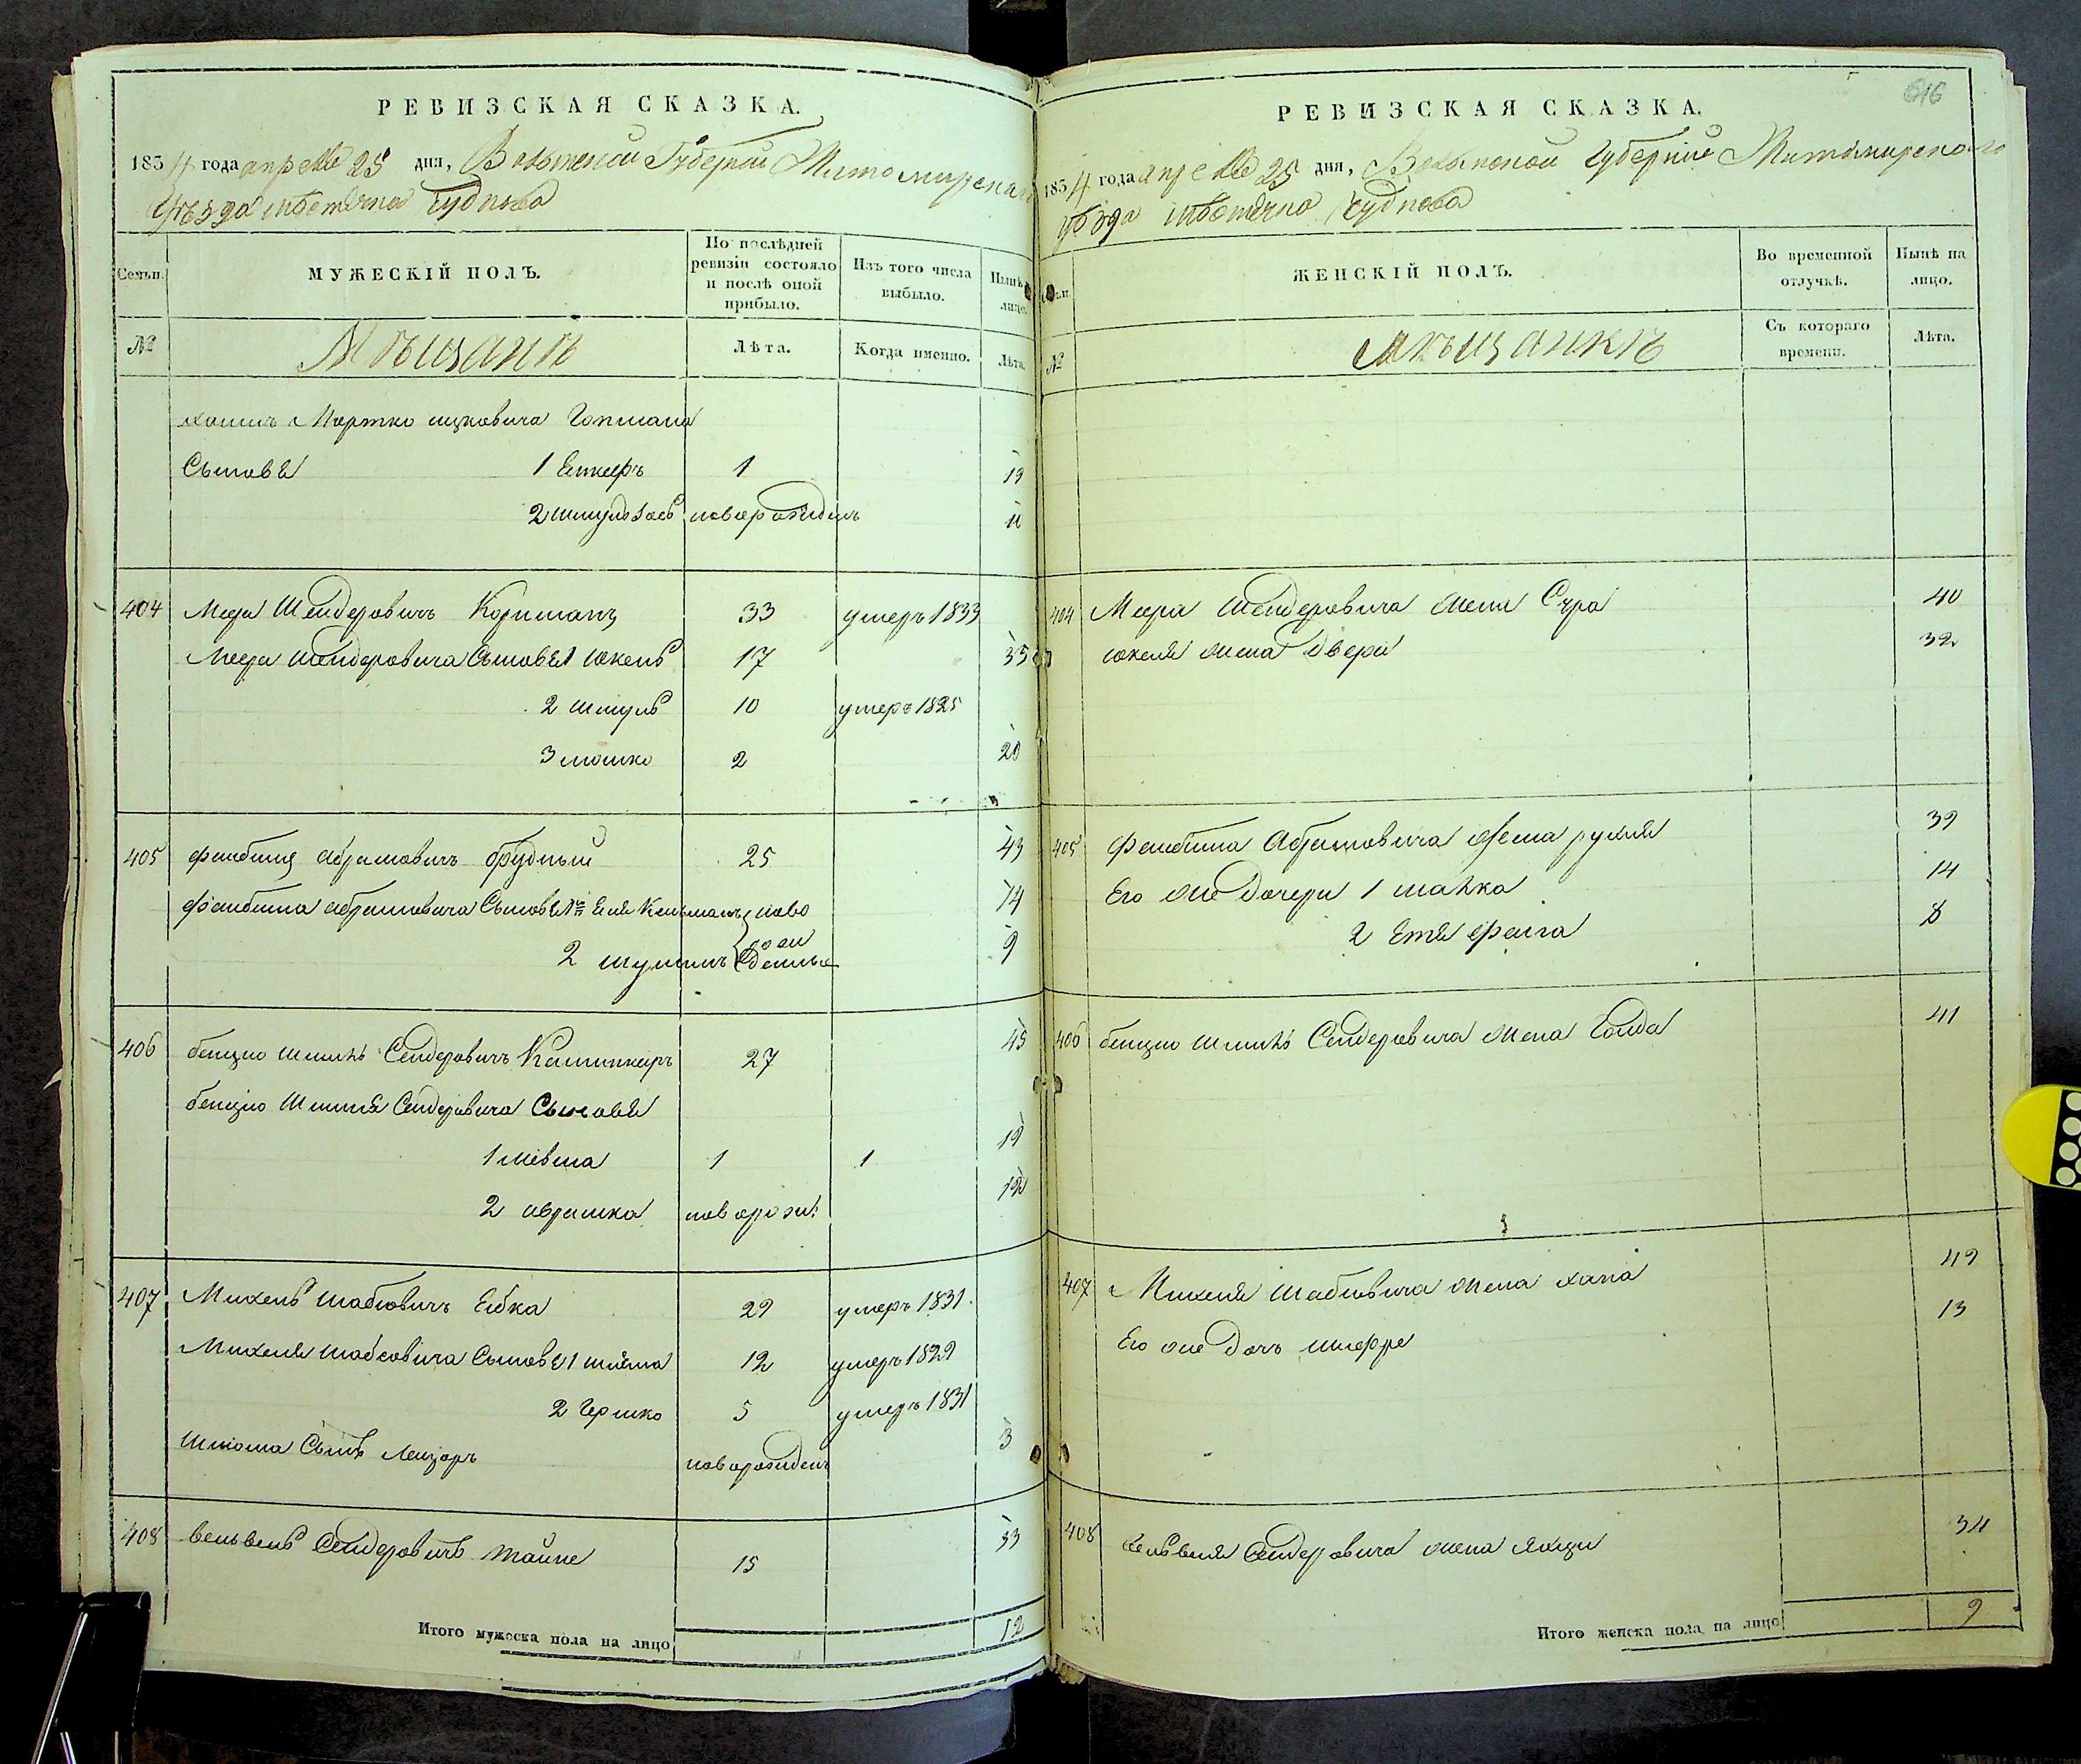 РЕВИЗСКАЯ СКАЗКА.
1834 года апреля 25 дня, Волынской Губернии Житомирскаго
Уѣзда мѣстечка Чуднова
Семьи.
МУЖЕСКІЙ ПОЛЪ.
По послѣдней ревизіи состояло и послѣ оной прибыло.
Изъ того числа выбыло.
Нынѣ на лицо.
№
Мѣщанѣ
Лѣта.
Когда именно.
Лѣта.
Мортко ицковича
Сыновя 1 1 19
2 новорожденъ 11
404 Меер Шендеровичъ 33 умеръ 1833
Меера Шендеровича Сыновя 1 Юкель 17 35
2 Шмуль 10 умеръ 1825
3 мошко 2 20
405 Абрамовичъ 25 43
Абрамовича Сыновя 1й ново 14
2 рож денные 9
406 бенцио Сендеровичъ 27 45
бенцио Сендеровича Сыновя
1 1 1 19
2 аврумка новорож: 12
407 Михель Шабсовичъ 29 умеръ 1831.
Михеля Шабсовича Сыновя 1 Шлёма 12 умеръ 1829
2 Гершко 5 умеръ 1831
Шлёома Сынъ Лейзоръ новорожденъ 3
408 Вельвель Сендеровичъ 15 33
Итого мужеска пола на лицо 12
616
РЕВИЗСКАЯ СКАЗКА.
1834 года апреля 25 дня, Волынской Губернии Житомирскаго
уѣзда мѣстечка Чуднова
Семьи.
ЖЕНСКІЙ ПОЛЪ.
Во временной отлучкѣ.
Нынѣ на лицо.
№
Мѣщанкѣ
Съ котораго времени.
Лѣта.
404 Меера Шендеровича жена Сура 40
юкеля жена Двера 32
405 Абрамовича жена рухля 39
Его же Дочери 1 14
2 Етя фейга 8
406 бенцио Сендеровича жена Голда 41
407 Михеля Шабсовича жена хана 49
Его же Дочь 13
408 Вельвеля Сендеровича жена 34
Итого женска пола на лицо 9